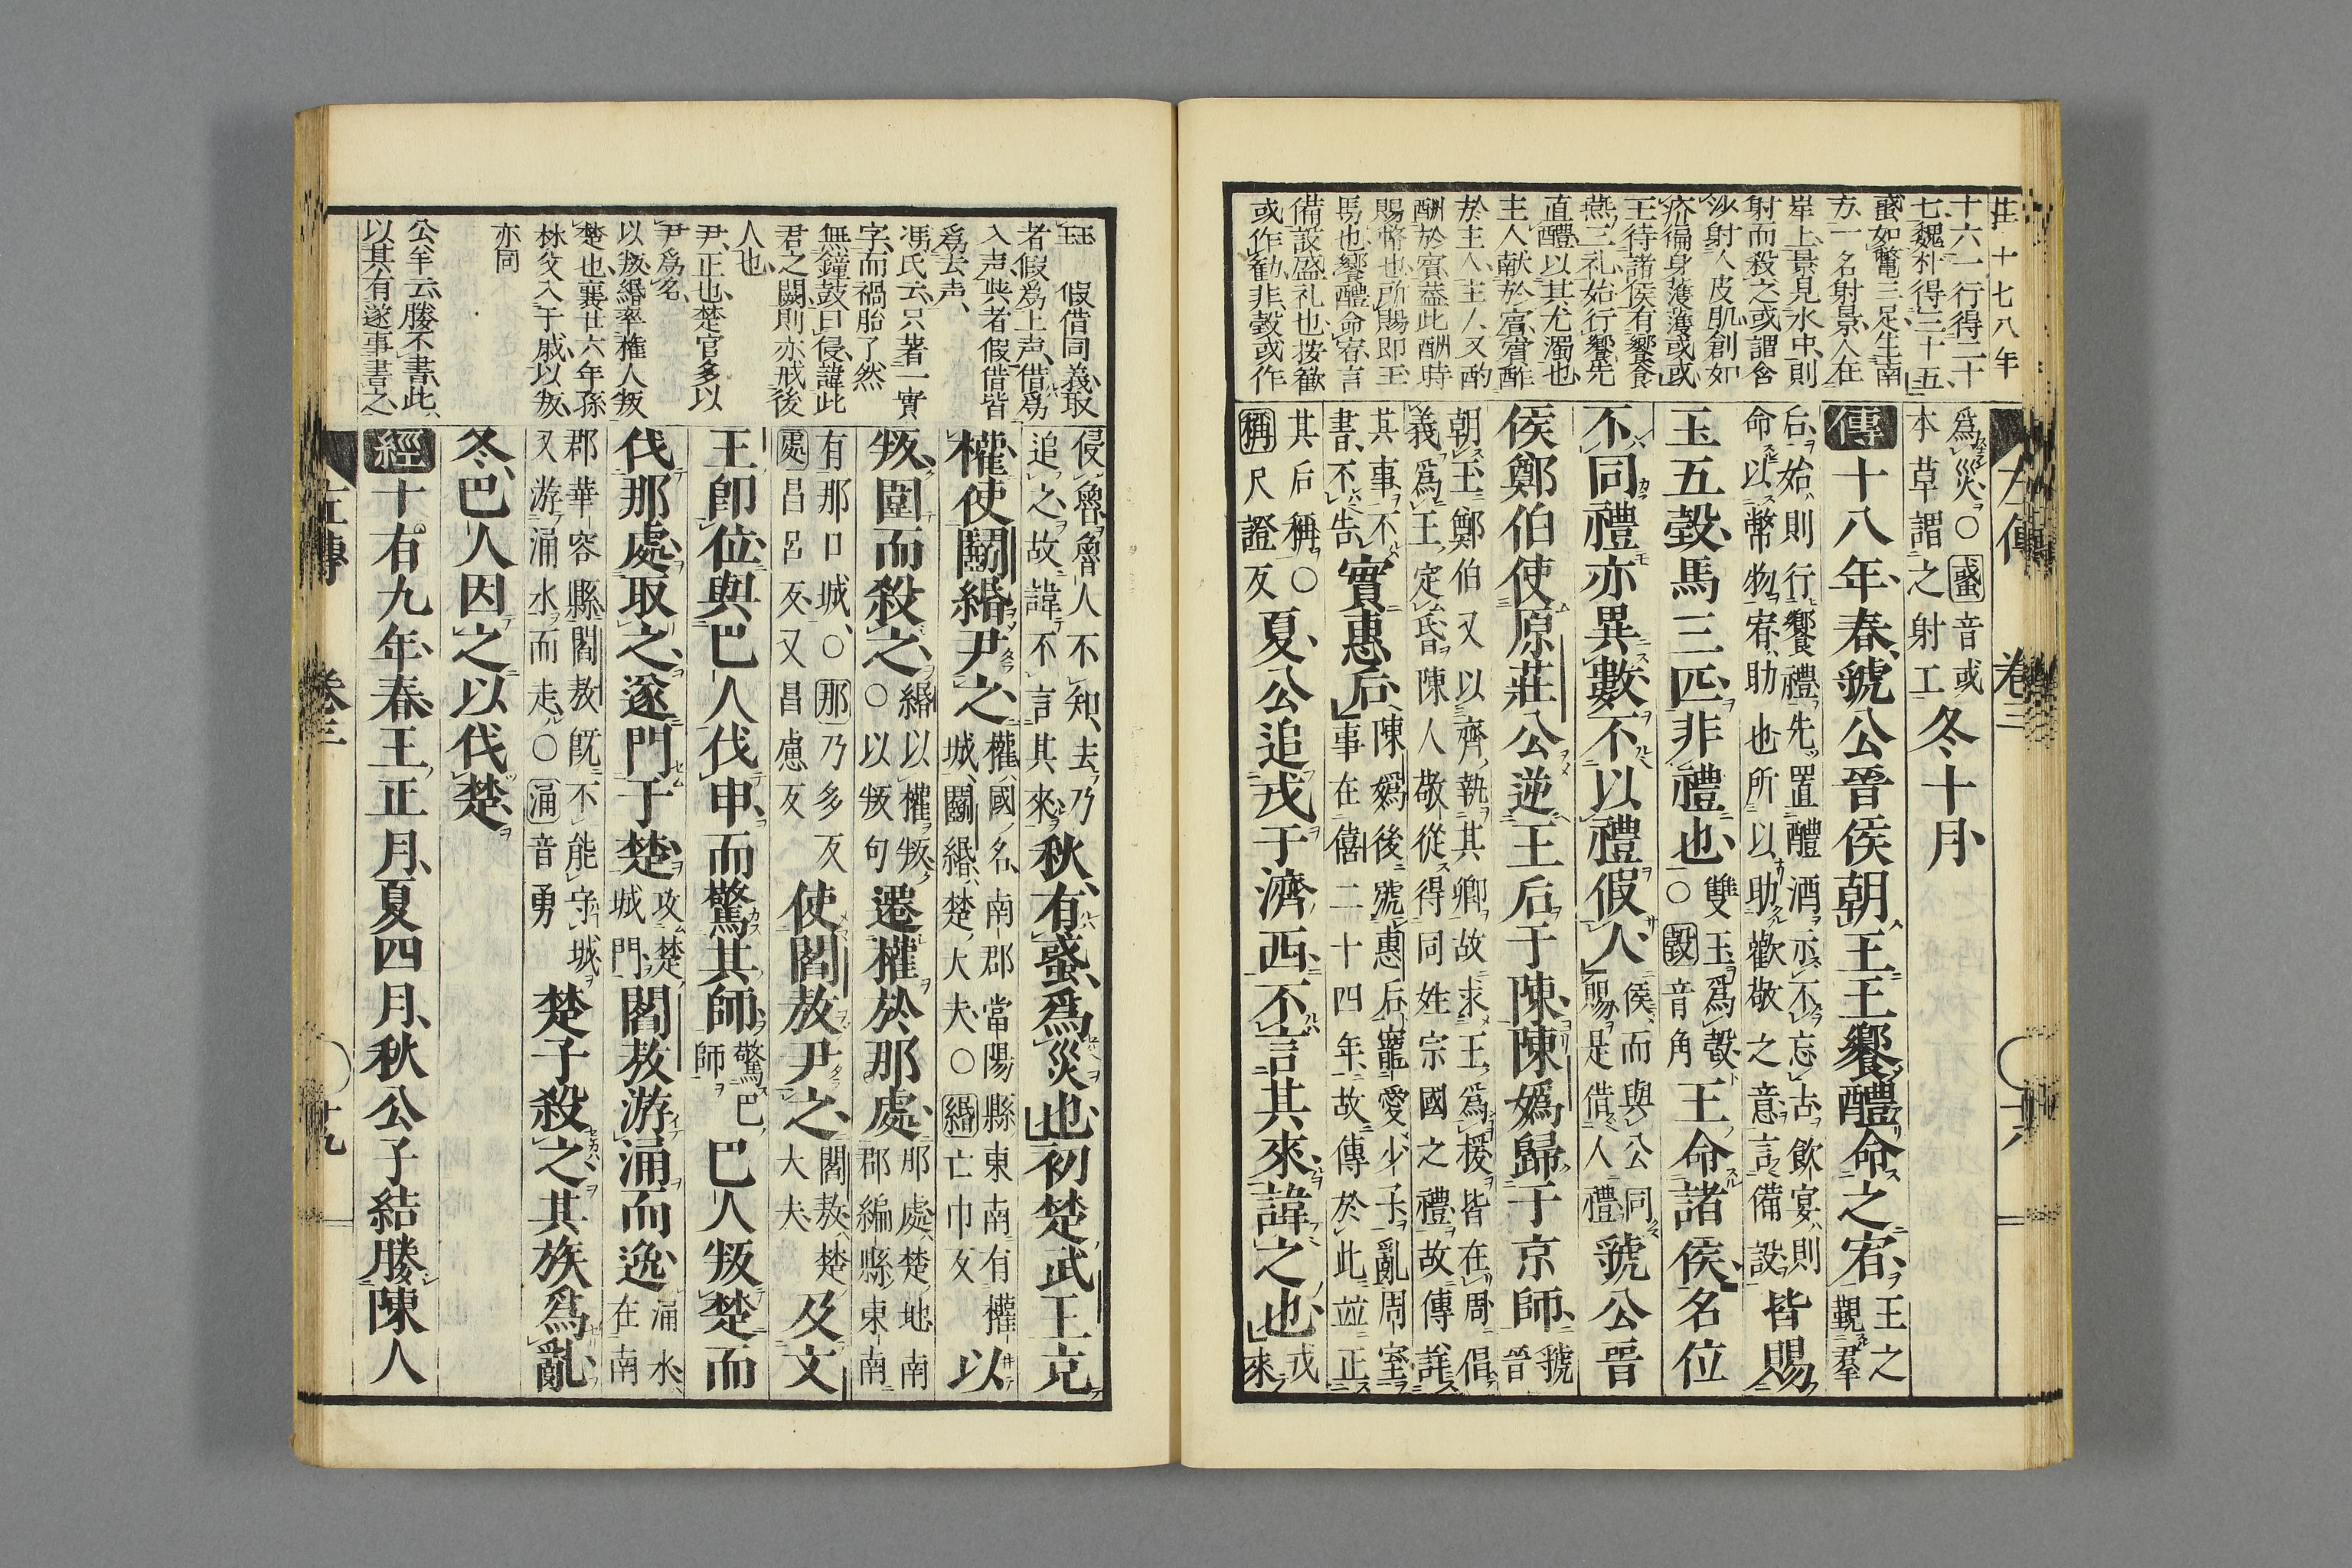 莊十七八年
十六一行得二十
七魏朴得三十五
蜮如鼈三足生南
方一名射景人在
岸上景見水中則
射而殺之或謂含
沙射人皮肌創如
疥徧身濩濩或或
王待諸侯有饗食
燕三礼始行饗先
直醴以其尤濁也
主人献於賓賓酢
於主人主人又酌
酬於賓葢此酬時
賜幣也所賜即王
馬也饗醴命宥言
備設盛礼也按歡
或作勧非瑴或作
左傳 卷三 十八
爲災○蜮音或本草謂之射工冬十月
傳十八年春虢公晉侯朝王王饗醴命之宥王之覲羣
后始則行饗禮先置醴酒示不忘古飲宴則命以幣物宥助也所以助歡敬之意言備設皆賜
玉五瑴馬三匹非禮也雙玉爲瑴○瑴音角王命諸侯名位
不同禮亦異數不以禮假人侯而與公同賜是借人禮虢公晉
侯鄭伯使原莊公逆王后于陳陳嬀歸于京師虢晉
朝王鄭伯又以齊執其卿故求王爲援皆在周倡義爲王定昏陳人敬從得同姓宗國之禮故傳詳
其事不書不告實惠后陳嬀後號惠后寵愛少子亂周室事在僖二十四年故傳於此竝正
其后稱○稱尺證反夏公追戎于濟西不言其來諱之也戎來
玨 假借同義取
者假爲上声借爲
入声貸者假借皆
爲去声
馮氏云只著一實
字而禍胎了然
無鐘鼓曰侵諱此
君之闕則亦戒後
人也
尹正也楚官多以
尹爲名
以叛緡率権人叛
楚也襄廿六年孫
林父入于戚以叛
亦同
公羊云媵不書此
以其有遂事書之
侵魯魯人不知去乃追之故諱不言其來秋有蜮爲災也初楚武王克
權使鬬緡尹之權國名南郡當陽縣東南有權城鬬緡楚大夫○緡亡巾反以
叛圍而殺之緡以權叛○以叛句遷權於那處那處楚地南郡編縣東南
有那口城○那乃多反處昌呂反又昌慮反使閻敖尹之閻敖楚大夫及文
王即位與巴人伐申而驚其師驚巴師巴人叛楚而
伐那處取之遂門于楚攻楚城門閻敖游涌而逸涌水在南
郡華容縣閻敖既不能守城又游涌水而走○涌音勇楚子殺之其族爲亂
冬巴人因之以伐楚
經十有九年春王正月夏四月秋公子結媵陳人
左傳 卷三 十九